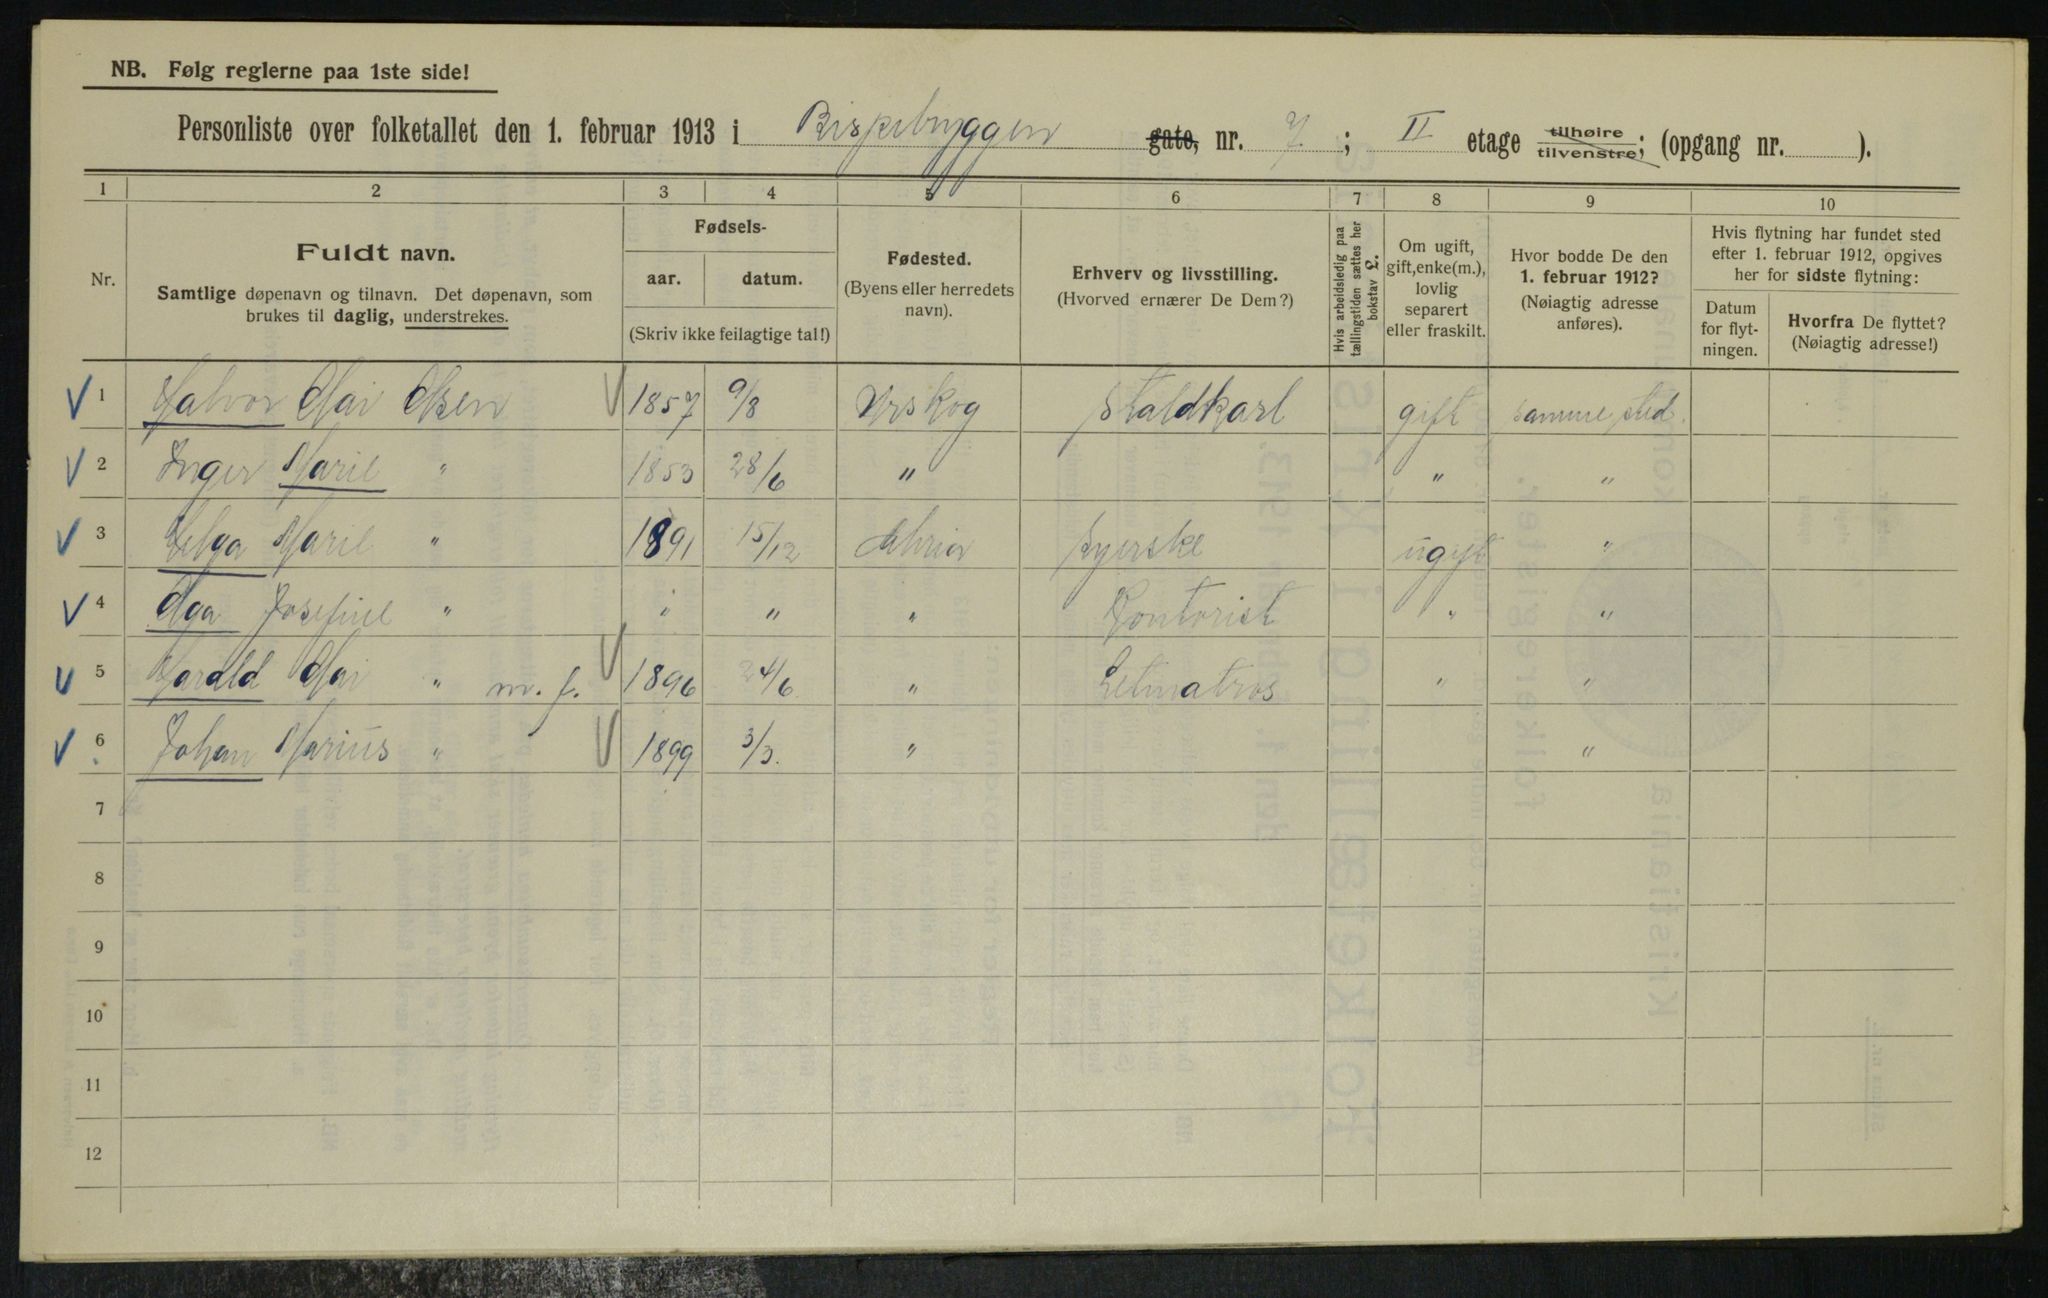 NB. Følg reglerne paa 1ste side!
Personliste over folketallet den 1. februar 1913 i Bispebryggen gate, nr. 7. ; II etage tilhøire tilvenstre; (opgang nr. ).
1 2 3 4 5 6 7 8 9 10
Nr.
Fuldt navn.
Samtlige døpenavn og tilnavn. Det døpenavn, som
brukes til daglig, understrekes.
Fødsels-
aar. datum.
(Skriv ikke feilagtige tal!)
Fødested.
(Byens eller herredets
navn).
Erhverv og livsstilling.
(Hvorved ernærer De Dem?)
Hvis arbeidsledig paa
tællingstiden sættes her
bokstav L.
Om ugift,
gift, enke(m.),
lovlig
separert
eller fraskilt.
Hvor bodde De den
1. februar 1912?
(Nøiagtig adresse
anføres).
Hvis flytning har fundet sted
efter 1. februar 1912, opgives
her for sidste flytning:
Datum
for flyt-
ningen.
Hvorfra De flyttet?
(Nøiagtig adresse!)
1 Halvor Olsen 1857 9/8 Urskog Staldkarl gift samme sted.
2 Inger Marie " 1853 28/6 " " "
3 Helga Marie " 1891 15/12 Kontorist ugift "
4 Aga Josefine " " " " Kontorist " "
5 Harald " m. f. 1896 24/6 " Letmatros " "
6 Johan Marius " 1899 3/3. " "
7
8
9
10
11
12